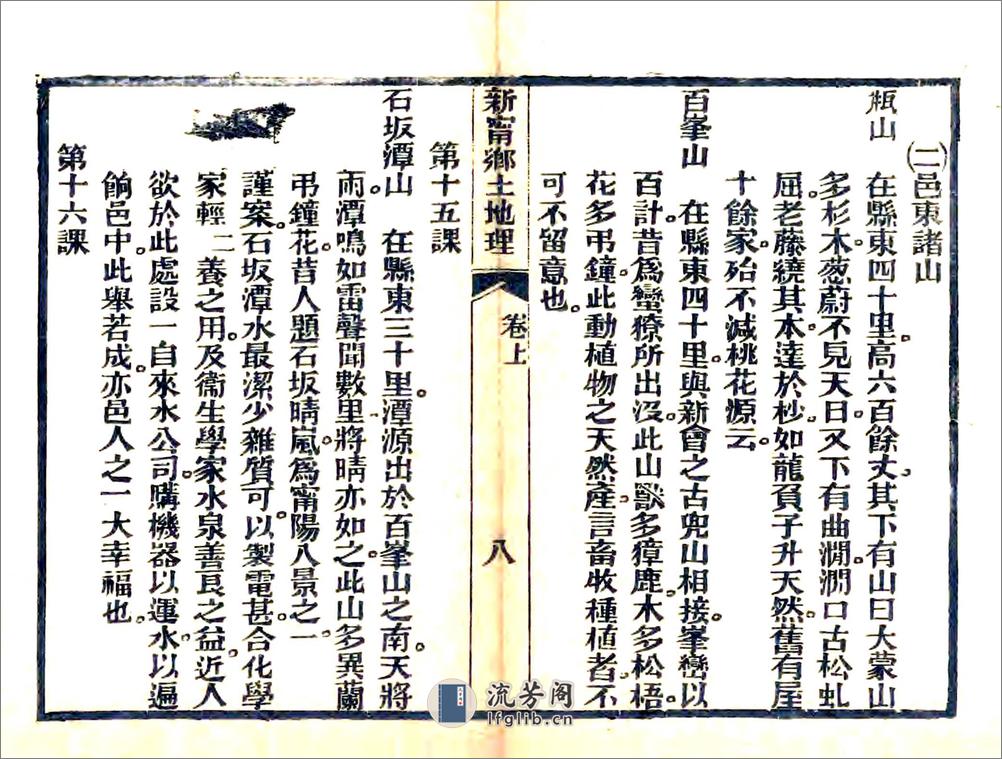 ㈡邑東諸山
瓶山　在縣東四十里。高六百餘丈。其下有山曰大蒙山
多杉木。葱蔚不見天日。又下有曲澗。澗口古松虬
屈。老藤繞其本。達於杪。如龍負子升天然。舊有屋
十餘家。殆不減桃花源云。
百峯山　在縣東四十里。與新會之古兜山相接。峯巒以
百計。昔爲蠻獠所出沒。此山獸多獐鹿。木多松梧。
花多弔鐘。此動植物之天然產。言畜牧種植者。不
可不留意也。
新甯鄉土地理　卷上　八
第十五課
石坂潭山　在縣東三十里。潭源出於百峯山之南。天將
雨。潭鳴如雷。聲聞數里。將晴亦如之。此山多異蘭
弔鐘花。昔人題石坂晴嵐。爲甯陽八景之一
謹案。石坂潭水最潔。少雜質。可以製電。甚合化學
家輕二養之用。及衞生學家水泉善良之益。近人
欲於此處設一自來水公司。購機器以運水。以遍
餉邑中。此舉若成。亦邑人之一大幸福也。
第十六課
流芳阁
lfglib.cn